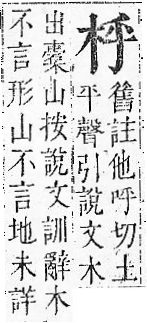 舊註他呼切土
平聲引說文木
出橐山按說文訓辭木
不言形山不言地未詳